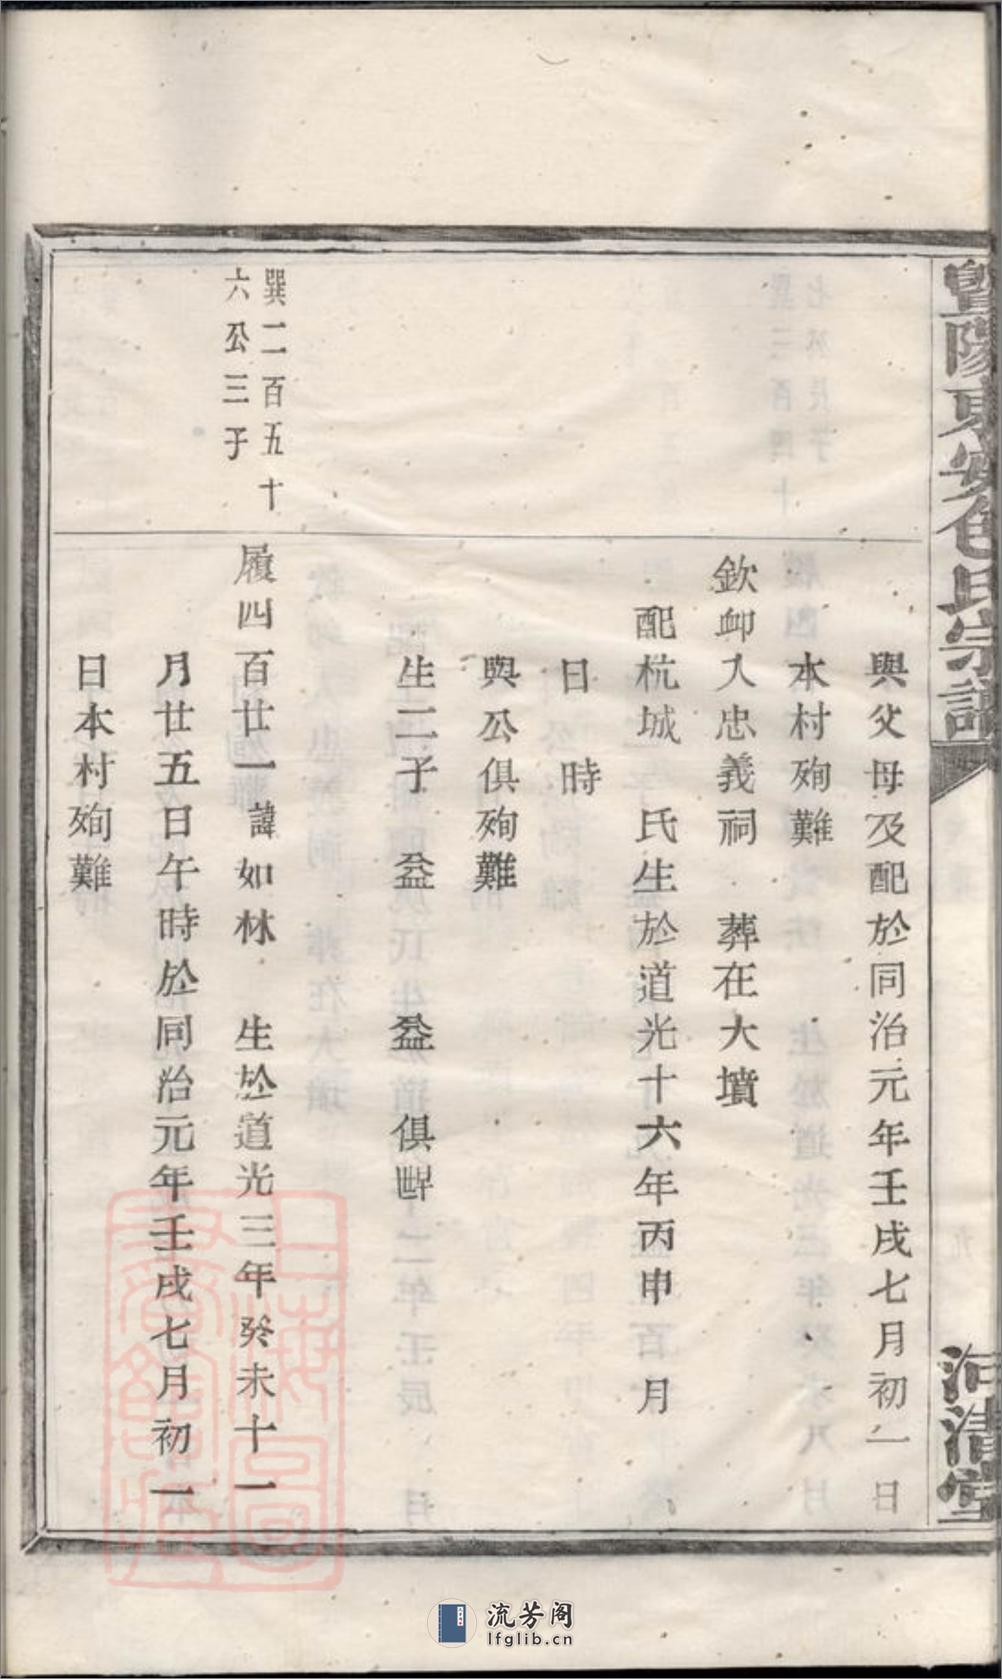 暨陽東安包氏宗譜
河清堂
與父母及配於同治元年壬戌七月初一日
本村殉難
欽卹入忠義祠 葬在大墳
配杭城 氏生於道光十六年丙申 月
日 時
與公俱殉難
生二子 益 益 俱㘲
巽二百五十
六公三子
履四百廿一諱如林 生於道光三年癸未十一
月廿五日午時於同治元年壬戌七月初一
日本村殉難
上海圖書館藏
流芳阁
lfglib.cn